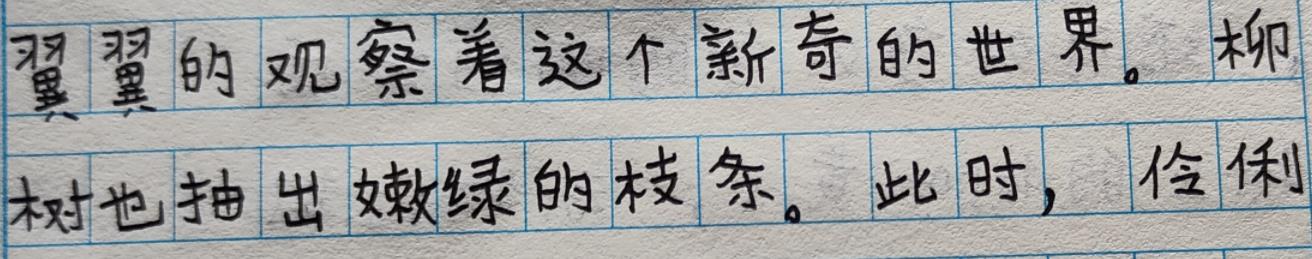 翼翼的观察着这个新奇的世界。柳
树也抽出嫩绿的枝条。此时，伶俐